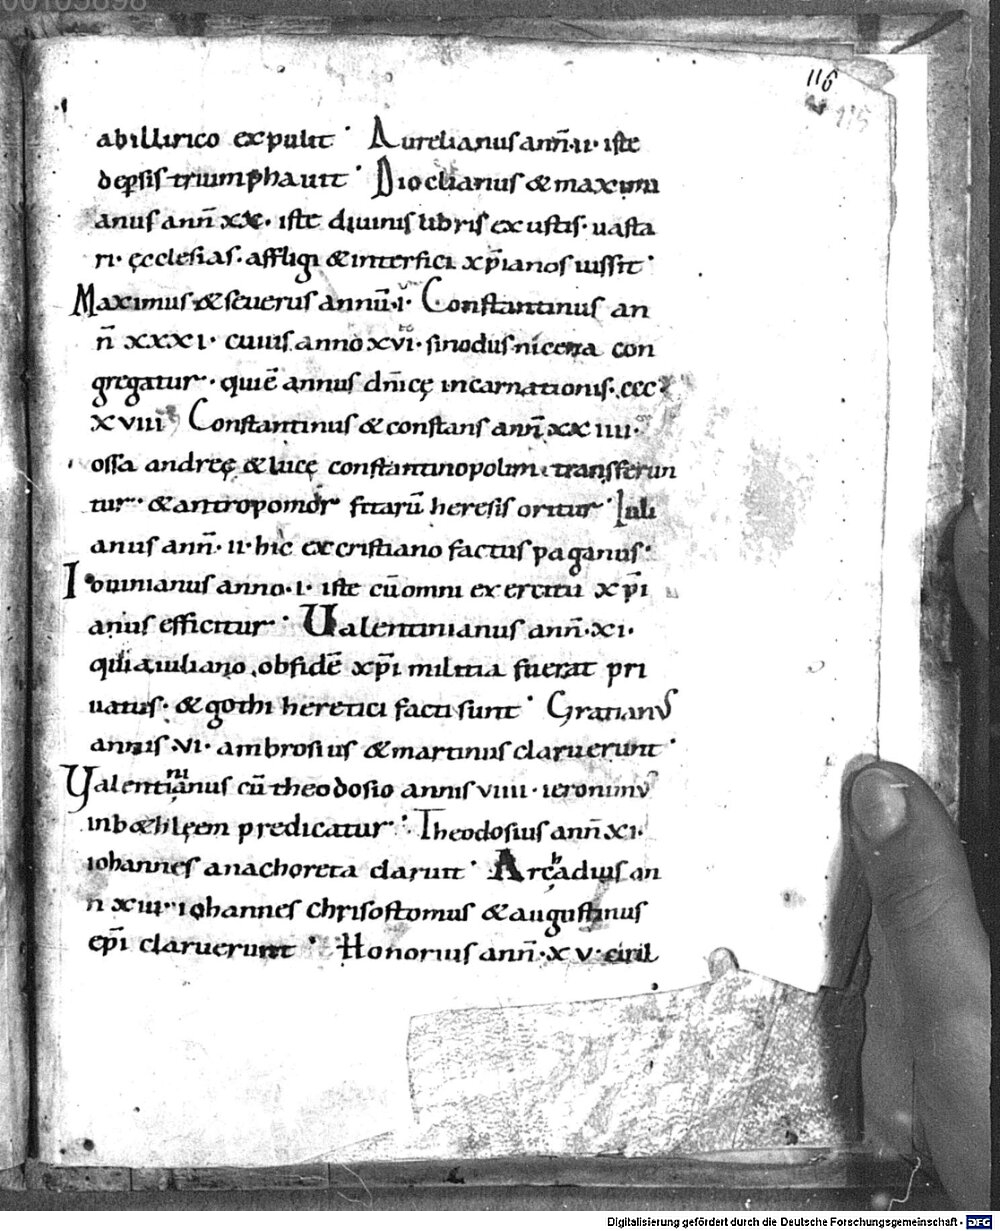 00105698
116
115
abillirico expulit · Aurelianus ann̄·ii· iste
depsis triumphauit · Dioclianus & maximi
anus ann̄ xx· iste diuinis libris exustis· uasta
ri· ęcclesias· affligi & interfici xp̄ianos iussit ·
Maximus & seuerus annū·i· Constantinus an
n̄ xxxi· cuius anno xvi· sinodus nicena con
gregatur· quiē annus dn̄icę incarnationis· ccc
xviii Constantinus & constans ann̄ xxiiii·
ossa andreę & lucę constantinopolim transferun
tur· & antropomor fitarū heresis oritur · Iuli
anus ann̄·ii· hic excristiano factus paganus·
Iouinianus anno·i· iste cū omni exercitu xp̄i
anus efficitur · Ualentinianus ann̄·xi·
quia iuliano obfidē xp̄i militia fuerat pri
uatus· & gothi heretici facti sunt · Gratianus
annis·vi· ambrosius & martinus claruerunt ·
Valentinianus cū theodosio annis viiii· ieronimus
inbęthlęem predicatur · Theodosius ann̄ xi·
iohannes anachoreta claruit · Archadius an
n xiii· iohannes chrisostomus & augustinus
ep̄i claruerunt · Honorius ann̄·xv· ciril
Digitalisierung gefördert durch die Deutsche Forschungsgemeinschaft - DFG